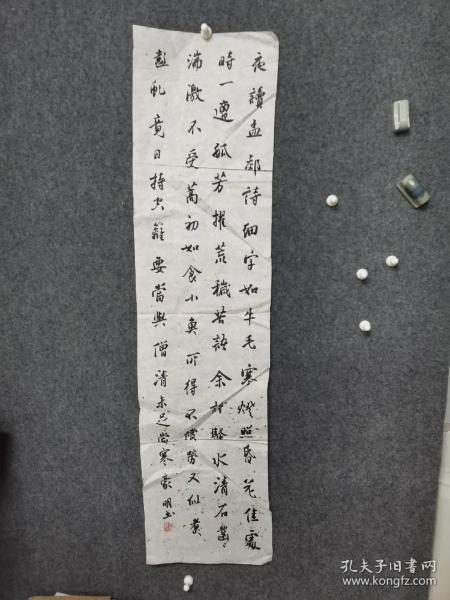 夜讀孟郊詩細字如牛毛寒燈照昏花佳處
時一遭孤芳擢荒穢苦語余詩騷水清石凿
湍激不受篙初如食小魚所得不償勞又似煮
彭 竟日持空 要當與僧清未足當寒豪 明书
孔夫子旧书网
www.kongfz.com